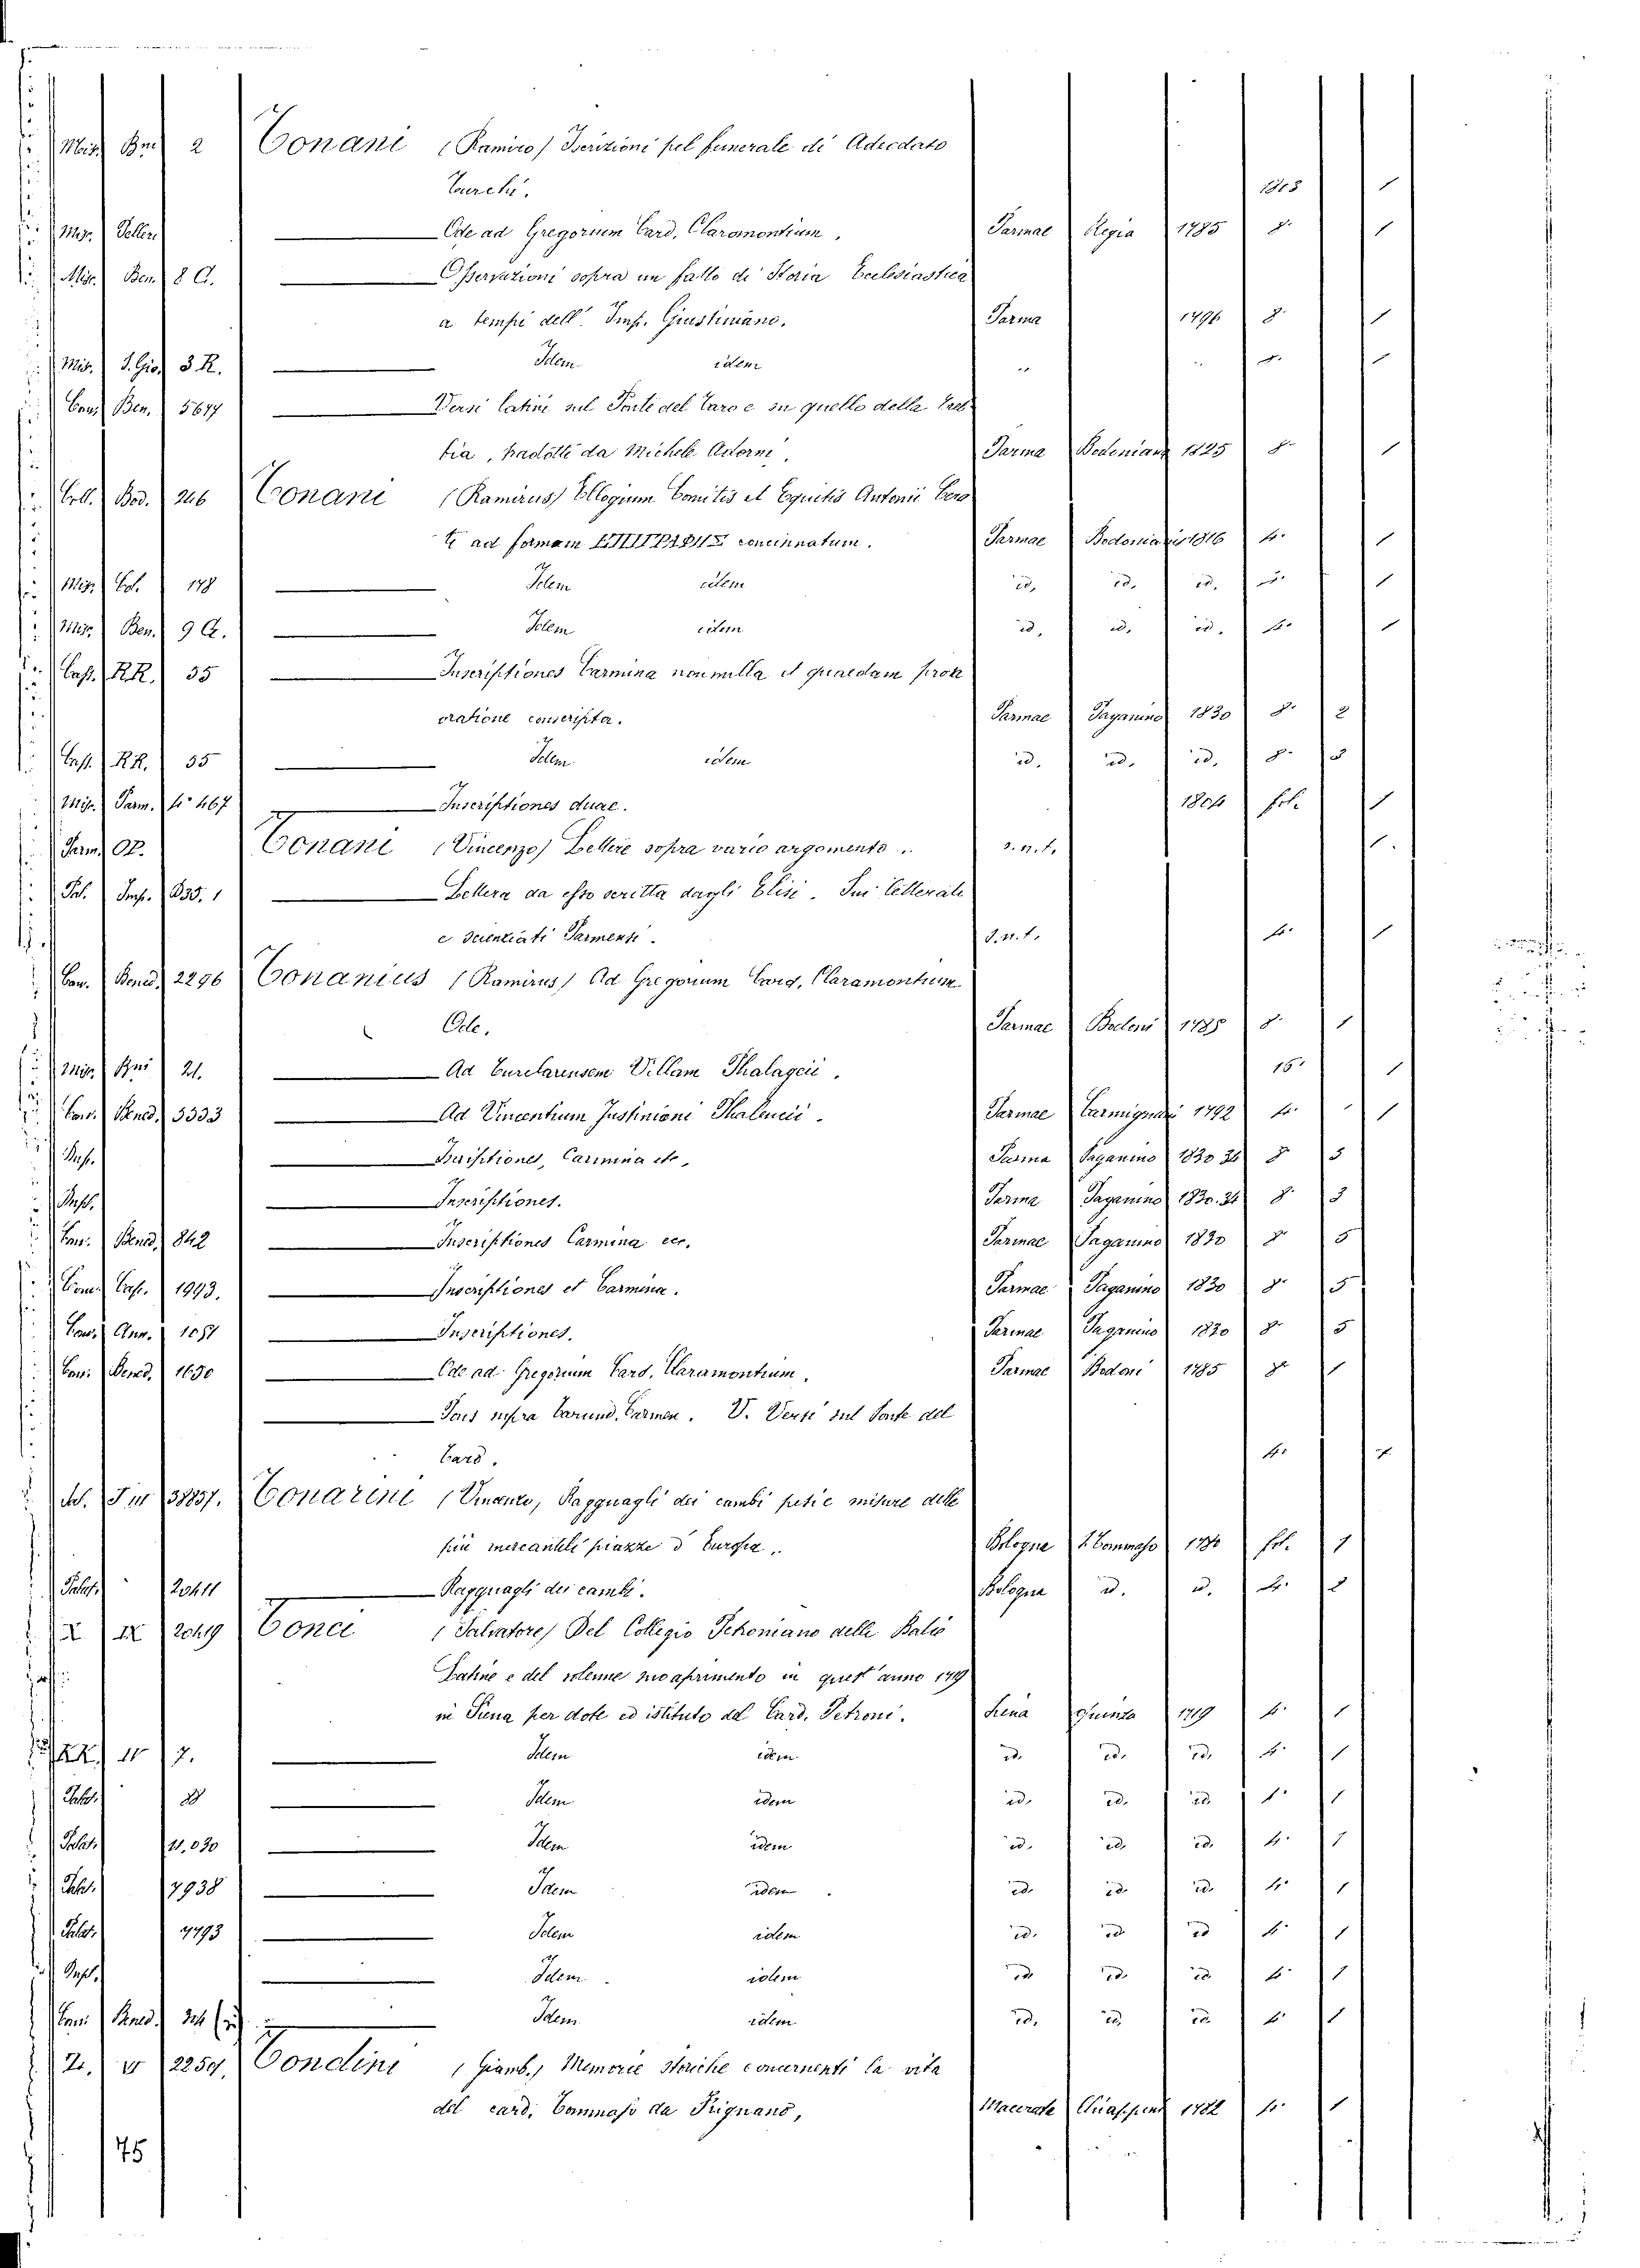 Misc. Bred 2 Tonani (Ramiro) Iscrizioni pel funerale di Adeodato
Turchi. 1803 1
Misc. Teller Ode ad Gregorium Card. Claramontium. Parmae Regia 1785 8° 1
Misc. Ben. 8 C. Osservazioni sopra un fatto di Storia Ecclesiastica
a tempi dell'Imp. Giustiniano. Parma 1796 8° 1
Mis. S. Gio. 3 R. Idem idem
Cons Ben. 5677 Versi latini sul Ponte del Taro e su quello della Treb-
bia, tradotti da Michele Adorni. Parma Bodoniana 1825 8° 1
Coll. Bod. 246 Tonani (Ramirus) Elogium Comitis et Equitis Antonii Cero
ti ad formam concinnatum. Parmae Bodonianis 1816 4° 1
Misc. Col. 178 Idem idem id. id. id. 1
Misc. Ben. 9 C. Idem idem id. id. id. 4° 1
Cass. R.R. 35 Inscriptiones Carmina nonnulla et quaedam prosa
oratione conscripta. Parmae Paganino 1830 8° 2
Cass. R.R. 35 Idem idem id. id. id. 8° 3
Misc. Parm. f° 467 Inscriptiones duae. 1804 fol. 1
Parm. OP. Tonani (Vincenzo) Lettere sopra vario argomento. s.n.t. 1
Pal. Imp. 835. 1 Lettera da esso scritta dagli Elisi. Sui letterati
e scienziati Parmensi. s.n.t. 4° 1
Con. Bened. 2296 Tonanius (Ramirus) Ad Gregorium Card. Claramontium
Ode. Parmae Bodoni 1785 8° 1
Misc. 21. Ad Curclarensem Villam Thalageii. 16° 1
Con. Bened. 3333 Ad Vincentium Justiniani Parmae Carmignani 1792 4° 1
Dup. Inscriptiones, Carmina etc. Parma Paganino 1830 31 8 5
Dupl. Inscriptiones. Parma Paganino 1830.31 8° 3
Con. Bened. 842 Inscriptiones Carmina ecc. Parmae Paganino 1830 8° 5
Con. Cap. 1993. Inscriptiones et Carmina. Parmae Paganino 1830 8° 5
Con. Ann. 1051 Inscriptiones. Parmae Paganino 1830 8° 5
Con. Bened. 1650 Ode ad Gregorium Card. Claramontium. Parmae Bodoni 1785 8° 1
Pons supra Tarum. Carmen. V. Versi sul Ponte del
Taro. 4°
38837. Tonarini (Vincenzo, Ragguagli dei cambi pesi e misure delle
più mercantili piazze d'Europa. Bologna S. Tommaso 1780 fol. 1
Palat. 20411 Ragguagli dei cambi. Bologna id. id. 4° 2
X IX 20419 Tonci (Salvatore) Del Collegio Tolomeano delle Balie
Latine e del solenne suo aprimento in quest'anno 1719
in Siena per dote ed istituto del Card. Petroni. Siena Quinza 1719 4° 1
7. Idem idem id. id. id. 4° 1
Palat. 28 Idem idem id. id. id. 1
Palat. 11.030 Idem idem id. id. id. 4° 1
Palat. 7938 Idem idem id. id. id. 4° 1
Palat. 7793 Idem idem id. id. id. 4° 1
Dupl. Idem idem id. id. id. 4° 1
Con. Bened. Idem idem id. id. id. 4° 1
22507. Tondini (Giamb.) Memorie storiche concernenti la vita
del card. Tommaso da Frignano, Macerata 1782 4° 1
75